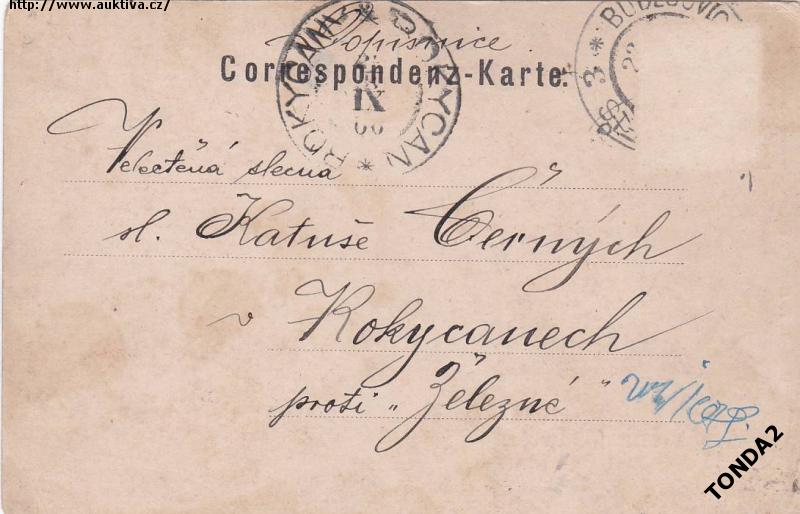 http://www.auktiva.cz/
Dopisnice
Correspondenz-Karte.
ROKYCAN
IX
3 * BUDĚJOVIC
Velectěná slečna
sl. Katuše Černých
v Rokycanech
proti „Železné"
TONDA2